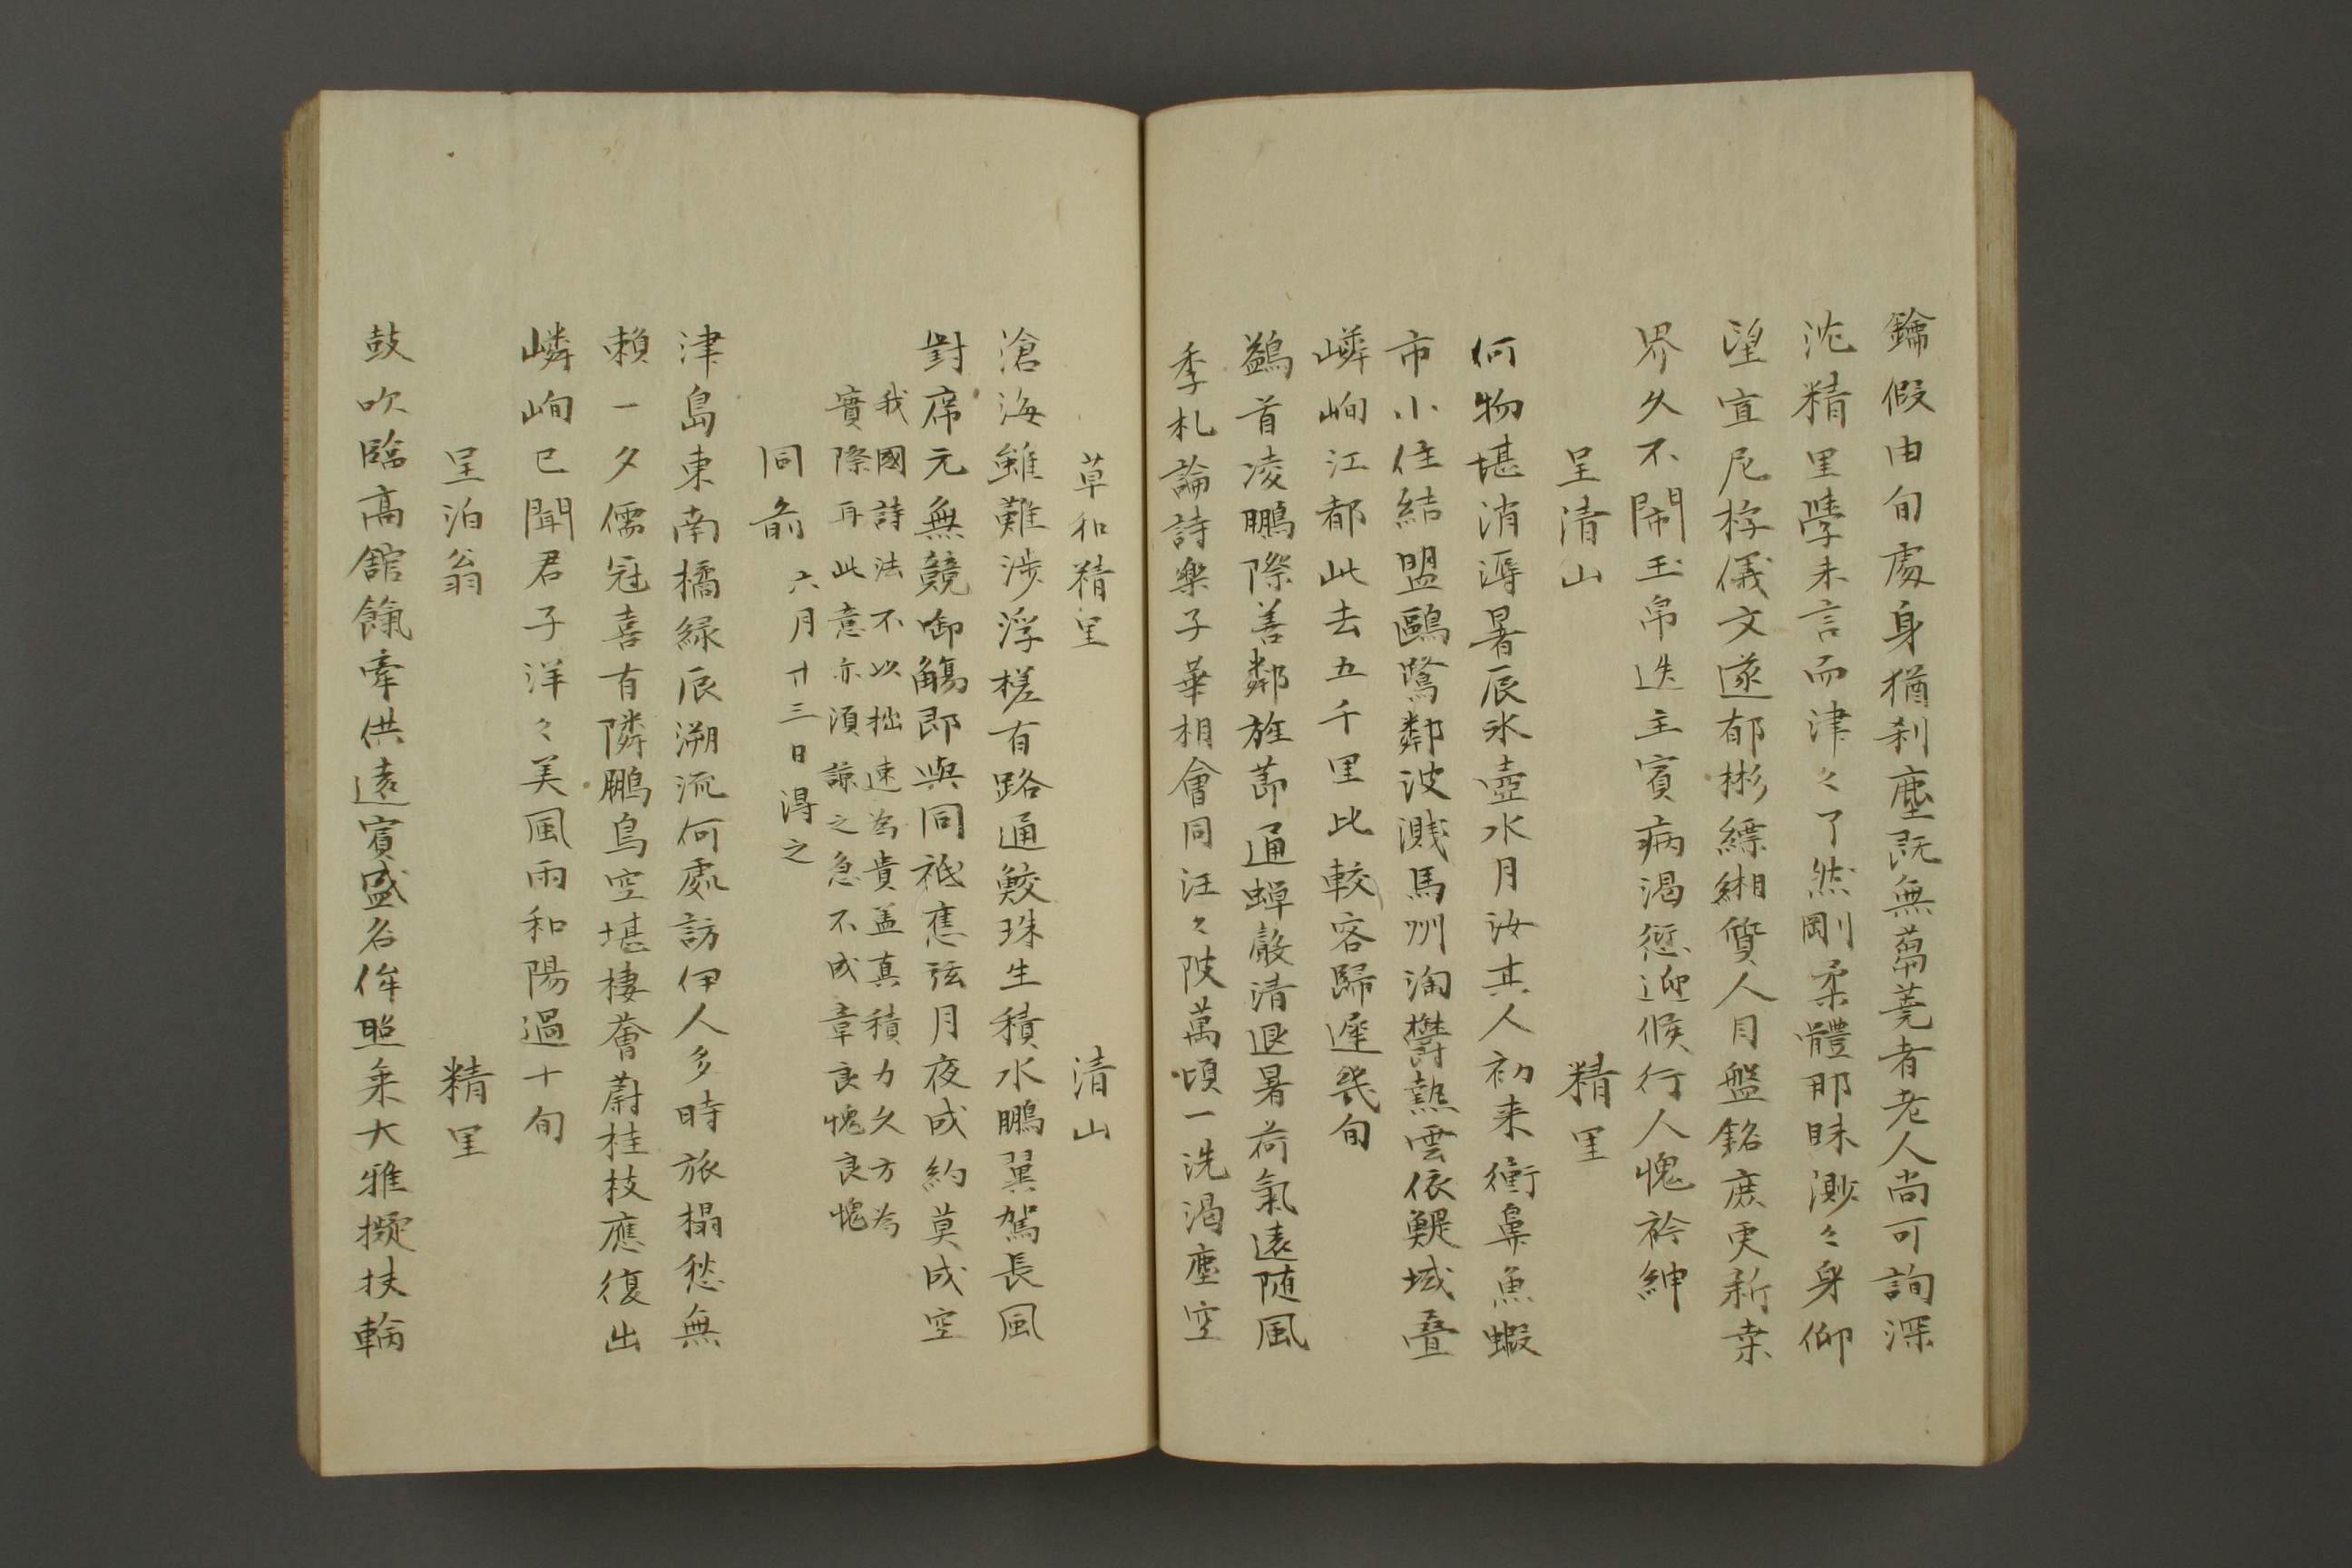 鑰假由旬處身猶刹塵既無蒭蕘者老人尚可詢深
沈精里學未言而津々了然剛柔體那昧渺々身仰
望宣尼桴儀文遂郁彬縹緗質人月盤銘庶更新桒
界久不鬧玉帛迭主賓病渴愆迎候行人愧衿紳
呈清山 精里
何物堪消溽暑辰氷壺水月汝其人初来衝鼻魚蝦
市小住結盟鷗鷺鄰波濺馬州淘欝熱雲依鯷域疊
嶙峋江都此去五千里比較客歸遲幾旬
鷁首凌鵬際善鄰旌莭通蝉嚴清退暑荷氣遠随風
季札論詩樂子華相會同汪々陂萬頃一洗渴塵空
草和精里 清山
滄海雖難涉浮槎有路通鮫珠生積水鵬翼駕長風
對席元無競啣觴即與同祗應弦月夜成約莫成空
我國詩法不以拙速為貴盖真積力久方為
實際耳此意亦須諒之急不成章良愧良愧
同前 六月廿三日得之
津島東南橘緑辰溯流何處訪伊人多時旅榻愁無
賴一夕儒冠喜有隣鵬鳥空堪棲薈蔚桂枝應復出
嶙峋已聞君子洋々美風雨和陽過十旬
呈泊翁 精里
鼓吹臨高舘餼牽供遠賓盛名侔照乗大雅擬扶輪